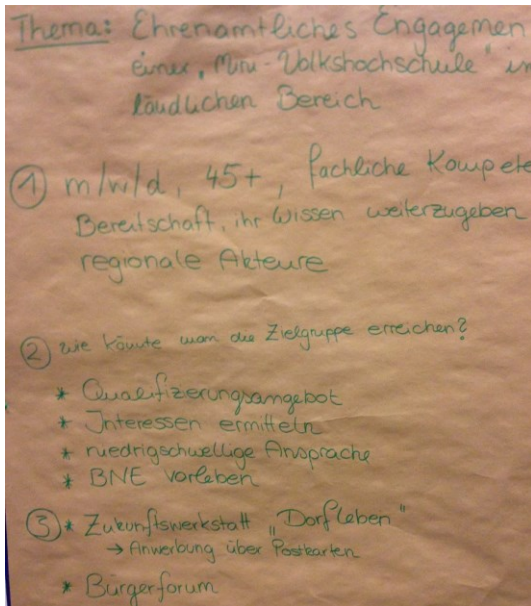 Thema: Ehrenamtliches Engagemen
einer „Mini-Volkshochschule" im
ländlichen Bereich
① m/w/d, 45+, fachliche Kompete
Bereitschaft, ihr Wissen weiterzugeben
regionale Akteure
② wie könnte man die Zielgruppe erreichen?
* Qualifizierungsangebot
* Interessen ermitteln
* niedrigschwellige Ansprache
* BNE vorleben
③ * Zukunftswerkstatt „Dorfleben"
→ Anwerbung über Postkarten
* Bürgerforum